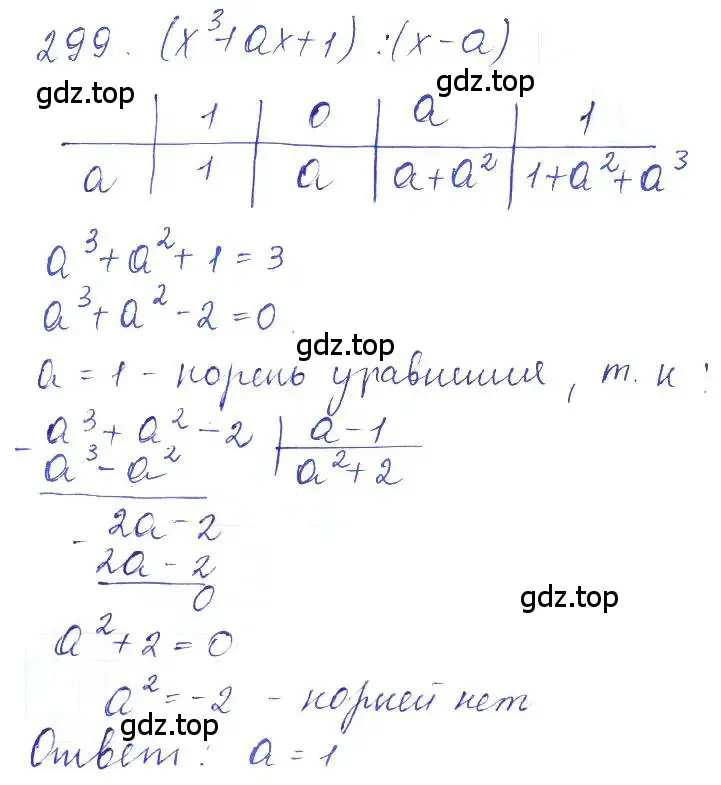 299. (x³+ax+1) :(x-a)
gdz.top
gdz.top
1 0 a 1
a 1 a a+a² 1+a²+a³
a³+a²+1=3
a³+a²-2=0
gdz.top
a=1 - корень уравнения, т. к!
- a³+a²-2 a-1
a³-a² a²+2
- 2a-2
2a-2
0
gdz.top
a²+2=0
a²=-2 - корней нет
gdz.top
Ответ: a=1